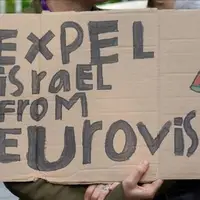 EXPEL
iSRaEL
FROM
EUROViS